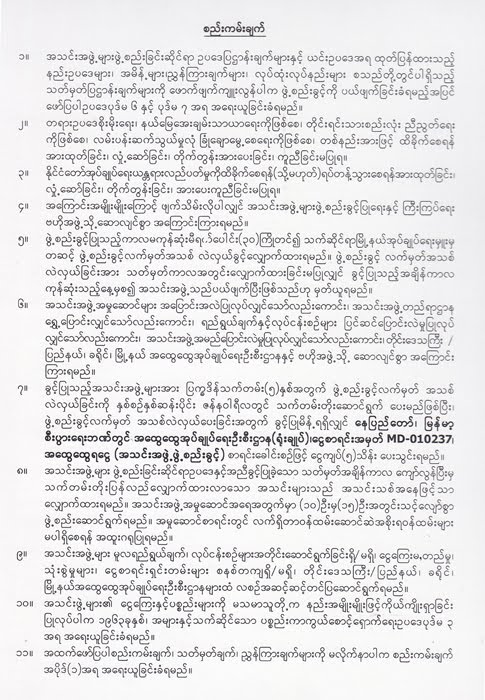 စည်းကမ်းချက်
၁။ အသင်းအဖွဲ့များဖွဲ့စည်းခြင်းဆိုင်ရာ ဥပဒေပြဌာန်းချက်များနှင့် ယင်းဥပဒေအရ ထုတ်ပြန်ထားသည့်
နည်းဥပဒေများ၊ အမိန့်များ၊ညွှန်ကြားချက်များ၊ လုပ်ထုံးလုပ်နည်းများ စသည်တို့တွင်ပါရှိသည့်
သတ်မှတ်ပြဌာန်းချက်များကို ဖောက်ဖျက်ကျူးလွန်ပါက ဖွဲ့စည်းခွင့်ကို ပယ်ဖျက်ခြင်းခံရမည့်အပြင်
ဖော်ပြပါဥပဒေပုဒ်မ ၆ နှင့် ပုဒ်မ ၇ အရ အရေးယူခြင်းခံရမည်။
၂။ တရားဥပဒေစိုးမိုးရေး၊ နယ်မြေအေးချမ်းသာယာရေးကိုဖြစ်စေ၊ တိုင်းရင်းသားစည်းလုံး ညီညွတ်ရေး
ကိုဖြစ်စေ၊ လမ်းပန်းဆက်သွယ်မှုလုံ ခြုံချောမွေ့စေရေးကိုဖြစ်စေ၊ တစ်နည်းအားဖြင့် ထိခိုက်စေရန်
အားထုတ်ခြင်း၊ လှုံ့ဆော်ခြင်း၊ တိုက်တွန်းအားပေးခြင်း၊ ကူညီခြင်းမပြုရ။
၃။ နိုင်ငံတော်အုပ်ချုပ်ရေးယန္တရားလည်ပတ်မှုကိုထိခိုက်စေရန်(သို့မဟုတ်)ရပ်တန့်သွားစေရန်အားထုတ်ခြင်း၊
လှုံ့ဆော်ခြင်း၊ တိုက်တွန်းခြင်း၊ အားပေးကူညီခြင်းမပြုရ။
၄။ အကြောင်းအမျိုးမျိုးကြောင့် ဖျက်သိမ်းလိုပါလျှင် အသင်းအဖွဲ့များဖွဲ့စည်းခွင့်ပြုရေးနှင့် ကြီးကြပ်ရေး
ဗဟိုအဖွဲ့သို့ဆောလျင်စွာ အကြောင်းကြားရမည်။
၅။ ဖွဲ့စည်းခွင့်ပြုသည့်ကာလမကုန်ဆုံးမီရက်ပေါင်း(၃၀)ကြိုတင်၍ သက်ဆိုင်ရာမြို့နယ်အုပ်ချုပ်ရေးမှူးမှ
တဆင့် ဖွဲ့စည်းခွင့်လက်မှတ်အသစ် လဲလှယ်ခွင့်လျှောက်ထားရမည်။ ဖွဲ့စည်းခွင့် လက်မှတ်အသစ်
လဲလှယ်ခြင်းအား သတ်မှတ်ကာလအတွင်းလျှောက်ထားခြင်းမပြုလျှင် ခွင့်ပြုသည့်အချိန်ကာလ
ကုန်ဆုံးသည့်နေ့မှစ၍ အသင်းအဖွဲ့သည်ပယ်ဖျက်ပြီးဖြစ်သည်ဟု မှတ်ယူရမည်။
၆။ အသင်းအဖွဲ့အမှုဆောင်များ အပြောင်းအလဲပြုလုပ်လျှင်သော်လည်းကောင်း၊ အသင်းအဖွဲ့တည်ရာဌာန
ရွှေ့ပြောင်းလျှင်သော်လည်းကောင်း၊ ရည်ရွယ်ချက်နှင့်လုပ်ငန်းစဉ်များ ပြင်ဆင်ပြောင်းလဲမှုပြုလုပ်
လျှင်သော်လည်းကောင်း၊ အသင်းအဖွဲ့အမည်ပြောင်းလဲမှုပြုလုပ်လျှင်သော်လည်းကောင်း၊တိုင်းဒေသကြီး /
ပြည်နယ်၊ ခရိုင်၊ မြို့နယ် အထွေထွေအုပ်ချုပ်ရေးဦးစီးဌာနနှင့် ဗဟိုအဖွဲ့သို့ ဆောလျင်စွာ အကြောင်း
ကြားရမည်။
၇။ ခွင့်ပြုသည့်အသင်းအဖွဲ့များအား ပြက္ခဒိန်သက်တမ်း(၅)နှစ်အတွက် ဖွဲ့စည်းခွင့်လက်မှတ် အသစ်
လဲလှယ်ခြင်းကို နှစ်စဉ်နှစ်ဆန်းပိုင်း ဇန်နဝါရီလတွင် သက်တမ်းတိုးဆောင်ရွက် ပေးမည်ဖြစ်ပြီး၊
ဖွဲ့စည်းခွင့်လက်မှတ် အသစ်လဲလှယ်ပေးခြင်းအတွက် ခွင့်ပြုမိန့်ရရှိလျှင် နေပြည်တော်၊ မြန်မာ့
စီးပွားရေးဘဏ်တွင် အထွေထွေအုပ်ချုပ်ရေးဦးစီးဌာန(ရုံးချုပ်)၊ငွေစာရင်းအမှတ် MD-010237၊
အထွေထွေရငွေ (အသင်းအဖွဲ့ဖွဲ့စည်းခွင့်) စာရင်းခေါင်းစဉ်ဖြင့် ငွေကျပ်(၅)သိန်း ပေးသွင်းရမည်။
၈။ အသင်းအဖွဲ့များ ဖွဲ့စည်းခြင်းဆိုင်ရာဥပဒေနှင့်အညီခွင့်ပြုခဲ့သော သတ်မှတ်အချိန်ကာလ ကျော်လွန်ပြီးမှ
သက်တမ်းတိုးပြန်လည်လျှောက်ထားလာသော အသင်းများသည် အသင်းသစ်အနေဖြင့်သာ
လျှောက်ထားရမည်။ အသင်းအဖွဲ့အမှုဆောင်အရေအတွက်မှာ (၁၀)ဦးမှ(၁၅)ဦးအတွင်းသင့်လျော်စွာ
ဖွဲ့စည်းဆောင်ရွက်ရမည်။ အမှုဆောင်စာရင်းတွင် လက်ရှိတာဝန်ထမ်းဆောင်ဆဲအစိုးရဝန်ထမ်းများ
မပါရှိစေရန် အထူးဂရုပြုရမည်။
၉။ အသင်းအဖွဲ့များ မူလရည်ရွယ်ချက်၊ လုပ်ငန်းစဉ်များအတိုင်းဆောင်ရွက်ခြင်းရှိ/မရှိ၊ ငွေကြေးမ,တည်မှု၊
သုံးစွဲမှုများ၊ ငွေစာရင်းရှင်းတမ်းများ စနစ်တကျရှိ/မရှိ၊ တိုင်းဒေသကြီး/ပြည်နယ်၊ ခရိုင်၊
မြို့နယ်အထွေထွေအုပ်ချုပ်ရေးဦးစီးဌာနများထံ လစဉ်အဆင့်ဆင့်တင်ပြဆောင်ရွက်ရမည်။
၁၀။ အသင်းဖွဲ့များ၏ ငွေကြေးနှင့်ပစ္စည်းများကို မသမာသူတို့က နည်းအမျိုးမျိုးဖြင့်ကိုယ်ကျိုးရှာခြင်း
ပြုလုပ်ပါက ၁၉၆၃ခုနှစ်၊ အများနှင့်သက်ဆိုင်သော ပစ္စည်းကာကွယ်စောင့်ရှောက်ရေးဥပဒေပုဒ်မ ၃
အရ အရေးယူခြင်းခံရမည်။
၁၁။ အထက်ဖော်ပြပါစည်းကမ်းချက်၊ သတ်မှတ်ချက်၊ ညွှန်ကြားချက်များကို မလိုက်နာပါက စည်းကမ်းချက်
အပိုဒ်(၁)အရ အရေးယူခြင်းခံရမည်။